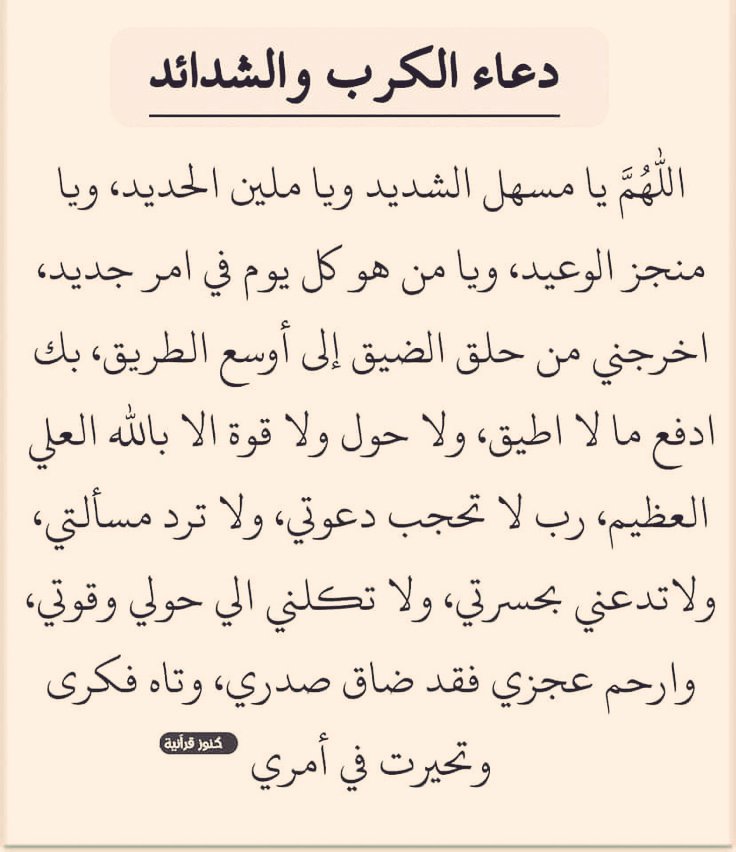 دعاء الكرب والشدائد
اللّٰهُمَّ يا مسهل الشديد ويا ملين الحديد، ويا
منجز الوعيد، ويا من هو كل يوم في امر جديد،
اخرجني من حلق الضيق إلى أوسع الطريق، بك
ادفع ما لا اطيق، ولا حول ولا قوة الا بالله العلي
العظيم، رب لا تحجب دعوتي، ولا ترد مسألتي،
ولاتدعني بحسرتي، ولا تكلني الي حولي وقوتي،
وارحم عجزي فقد ضاق صدري، وتاه فكرى
وتحيرت في أمري
كنوز قرآنية